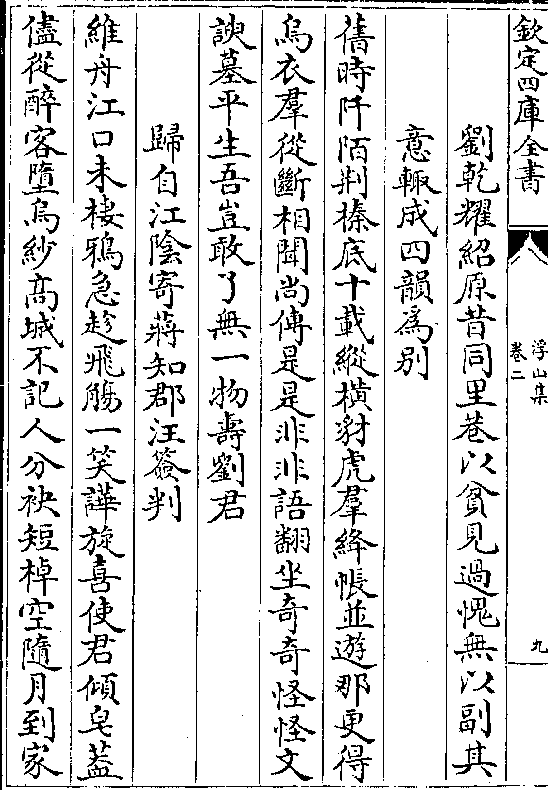 欽定四庫全書
浮山集
卷二
九
劉乾耀紹原昔同里巷以貧見過愧無以副其
意輒成四韻為别
舊時阡陌荆榛底十載縱横豺虎羣絳帳並遊那更得
烏衣羣從斷相聞尚傳是是非非語翻坐奇奇怪怪文
諛墓平生吾豈敢了無一物壽劉君
歸自江陰寄蔣知郡汪簽判
維舟江口未棲鴉急趁飛觴一笑譁旋喜使君傾皂蓋
儘從醉客墮烏紗髙城不記人分袂短棹空隨月到家